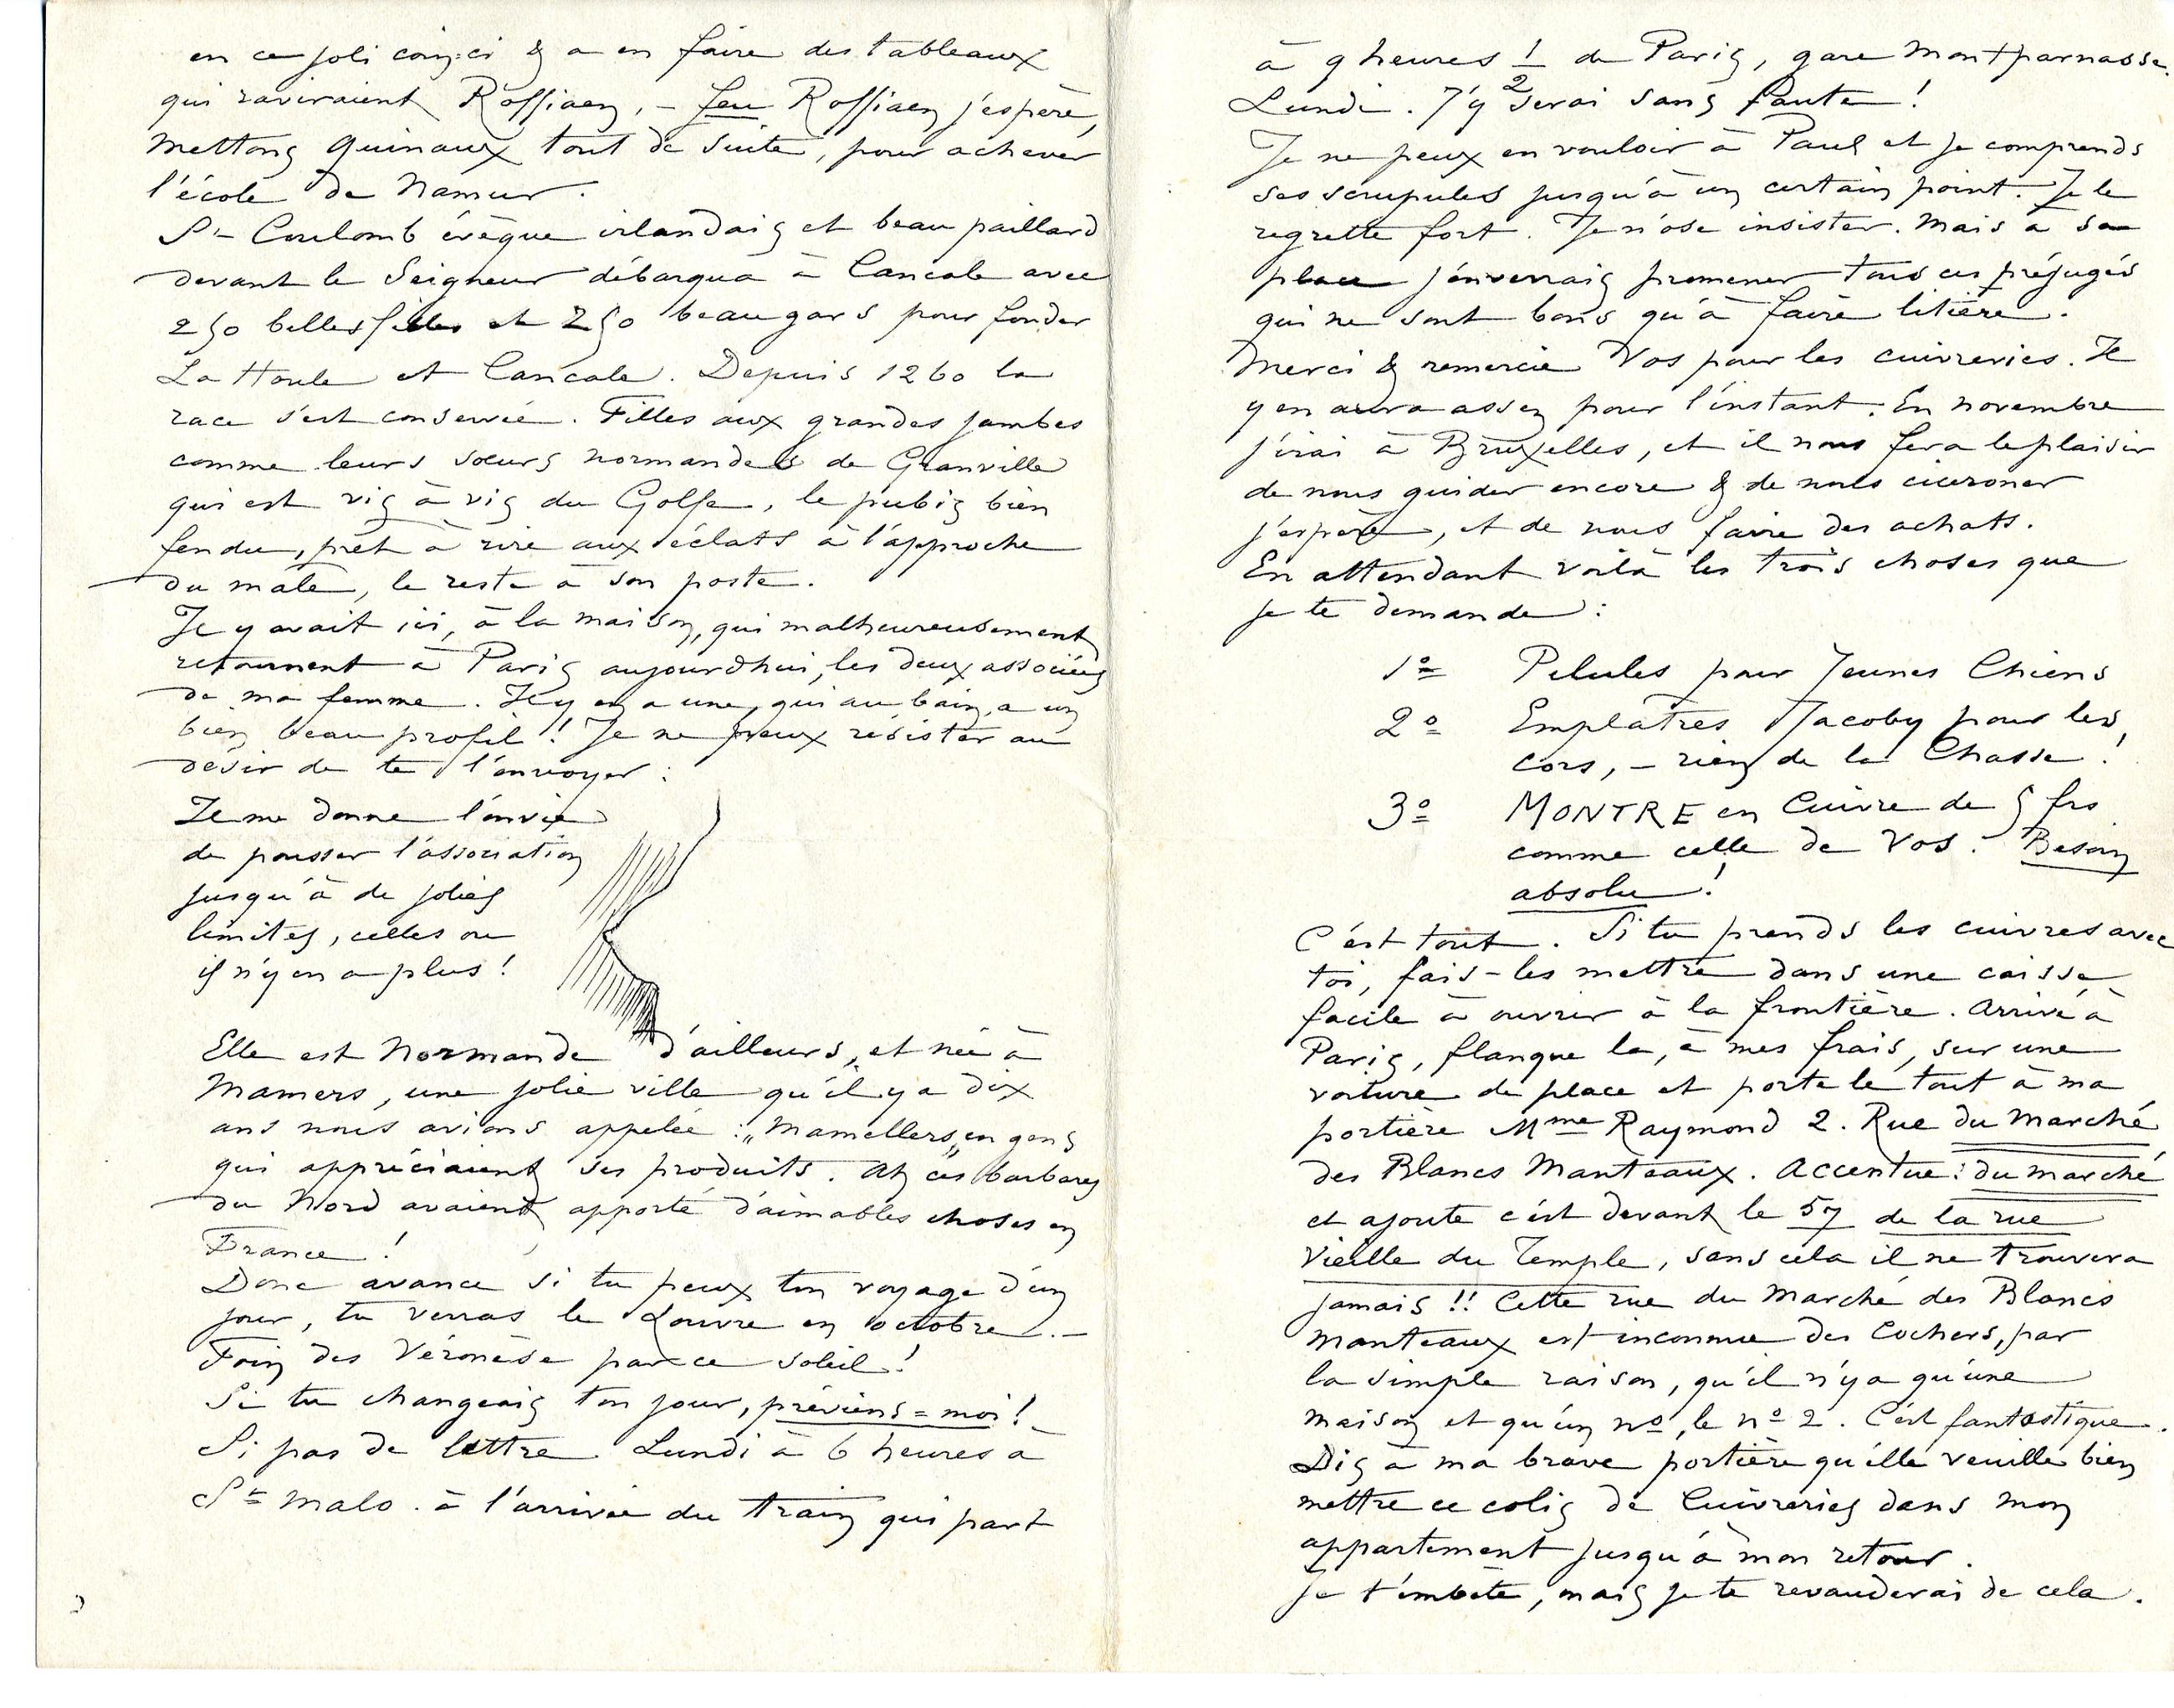 en ce joli coin-ci & a en faire des tableaux
qui raviraient Roffiaen, – feu Roffiaen j'espère,
mettons Quinaux tout de suite, pour achever
l'école de Namur.
St Coulomb évèque irlandais et beau paillard
devant le Seigneur débarqua à Cancale avec
250 belles filles et 250 beaux gars pour fonder
La Houle et Cancale. Depuis 1260 la
race s'est conservée. Filles aux grandes jambes
comme leurs sœurs normandes de Granville
qui est vis à vis du Golfe, le pubis bien
fendu, prêt à rire aux éclats à l'approche
du mâle, le reste à son poste.
Il y avait ici, à la maison, qui malheureusement
retournent à Paris aujourdhui, les deux associées
de ma femme. Il y en a une, qui au bain, a un
bien beau profil ! Je ne peux résister au
désir de te l'envoyer :
Il me donne l'envie
de pousser l'association
jusqu'à de jolies
limites, celles ou
il n'y en a plus !
Elle est Normande d'ailleurs, et née à
Mamers, une jolie ville qu'il y a dix
ans nous avions appelée : „Mamellers„ en gens
qui appréciaient ses produits. Ah ces barbares
du Nord avaient apporté d'aimables choses en
France !
Donc avance si tu peux ton voyage d'un
jour, tu verras le Louvre en octobre. –
Foin des Véronèse par ce soleil !
Si tu changeais ton jour, préviens=moi !
Si pas de lettre Lundi à 6 heures à
St Malo. à l'arrivée du train qui part
à 9 heures 1/2 de Paris, gare Montparnasse.
Lundi. J'y serai sans faute !
Je ne peux en vouloir à Paul et je comprends
ses scrupules jusqu'à un certain point. Je le
regrette fort. Je n'ose insister. Mais à sa
place j'enverrais promener tous ces préjugés
qui ne sont bons qu'à faire litière.
Merci & remercie Vos pour les cuivreries. Il
y en aura assez pour l'instant. En novembre
j'irai à Bruxelles, et il nous fera le plaisir
de nous guider encore & de nous ciceroner
j'espère, et de nous faire des achats.
En attendant voilà les trois choses que
je te demande :
1o Pilules pour Jeunes Chiens
2o Emplâtres Jacoby pour les
cors, – rien de la Chasse !
3o MONTRE en Cuivre de 5 frs
comme celle de Vos. Besoin
absolu !
C'est tout. Si tu prends les cuivres avec
toi, fais-les mettre dans une caisse
facile à ouvrir à la frontière. Arrivé à
Paris, flanque la, à mes frais, sur une
voiture de place et porte le tout à ma
portière Mme Raymond 2. Rue du Marché
des Blancs Manteaux. Accentue : du marché
et ajoute c'est devant le 57 de la rue
Vieille du Temple, sans cela il ne trouvera
jamais !! Cette rue du Marché des Blancs
Manteaux est inconnue des Cochers, par
la simple raison, qu'il n'y a qu'une
maison et qu'un no, le no 2. C'est fantastique.
Dis à ma brave portière qu'elle veuille bien
mettre ce colis de Cuivreries dans mon
appartement jusqu'à mon retour.
Je t'embète, mais je te revauderai de cela.